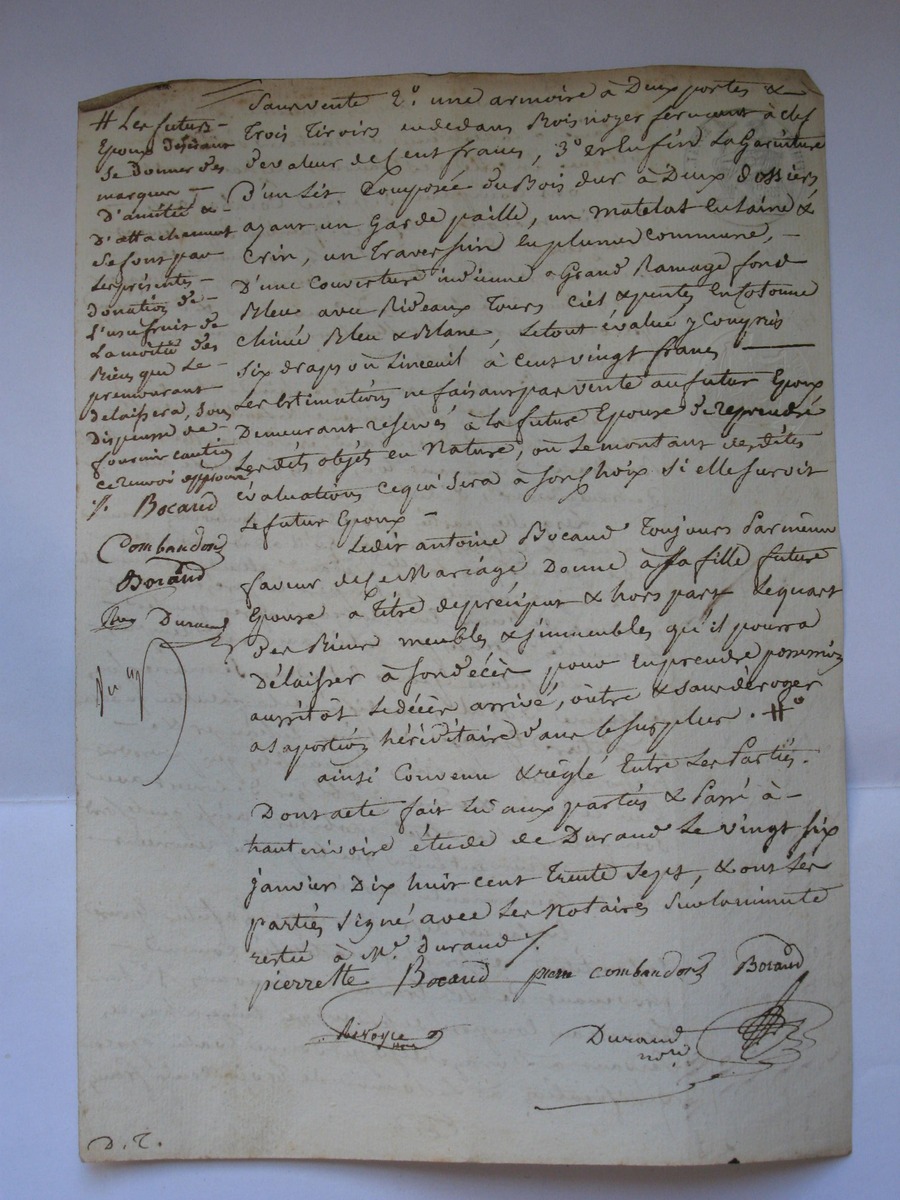 # Les futurs
Epoux désirant
se donner des
marques
D'amitié &
D'attachement
se font par
les présentes
donation de
L'usufruit de
La moitié des
Biens que le
premourant
délaissera, sous
Dispense de
fournir caution
ce renvoi approuvé
Bocaud
Combaudon
Boraud
Durand
Sauvente 2°. une armoire à Deux portes &
Trois Tiroirs endedans Bois noyer fermant à clef
de valeur de Cent francs, 3° et Enfin La Garniture
D'un Lit Composée du Bois dur à Deux dossiers
ayant un Garde paille, un matelat en laine &
Crin, un Traversin en plume commune,
D'une Couverture indienne a Grand Ramage fond
Bleu avec Rideaux Tours ciel & pentes En Cotonne
chinée Bleu & Blanc, Le tout évalué y Compris
six draps ou Linceuil à Cent vingt francs
Les Estimations ne faisant pas vente au futur Epoux
Demeurant réservés à la future Epouse de reprendre
Lesdits objets en Nature, ou le montant desdites
évaluations ce qui sera à son Choix si elle survit
Le futur Epoux
Ledit antoine Bocaud Toujours Par même
faveur de Ce Mariage Donne à sa fille future
Epouse à Titre de préciput & hors part Le quart
des Biens meubles & immeubles qu'il pourra
Délaisser à son décès pour en prendre possession
aussitôt Le décès arrivé, outre & sans déroger
a sa portion héréditaire dans le surplus. #
ainsi Convenu & réglé Entre Les Parties.
Dont acte fait Lu aux parties & Passé à
hauterivoire étude de Durand Le vingt six
janvier Dix huit cent Trente Sept, & ont Les
parties Signé avec Les Notaires Sur la minute
restée à Me. Durand
pierrette Bocaud pierre Combaudon Boraud
Durand
nore
D. T.